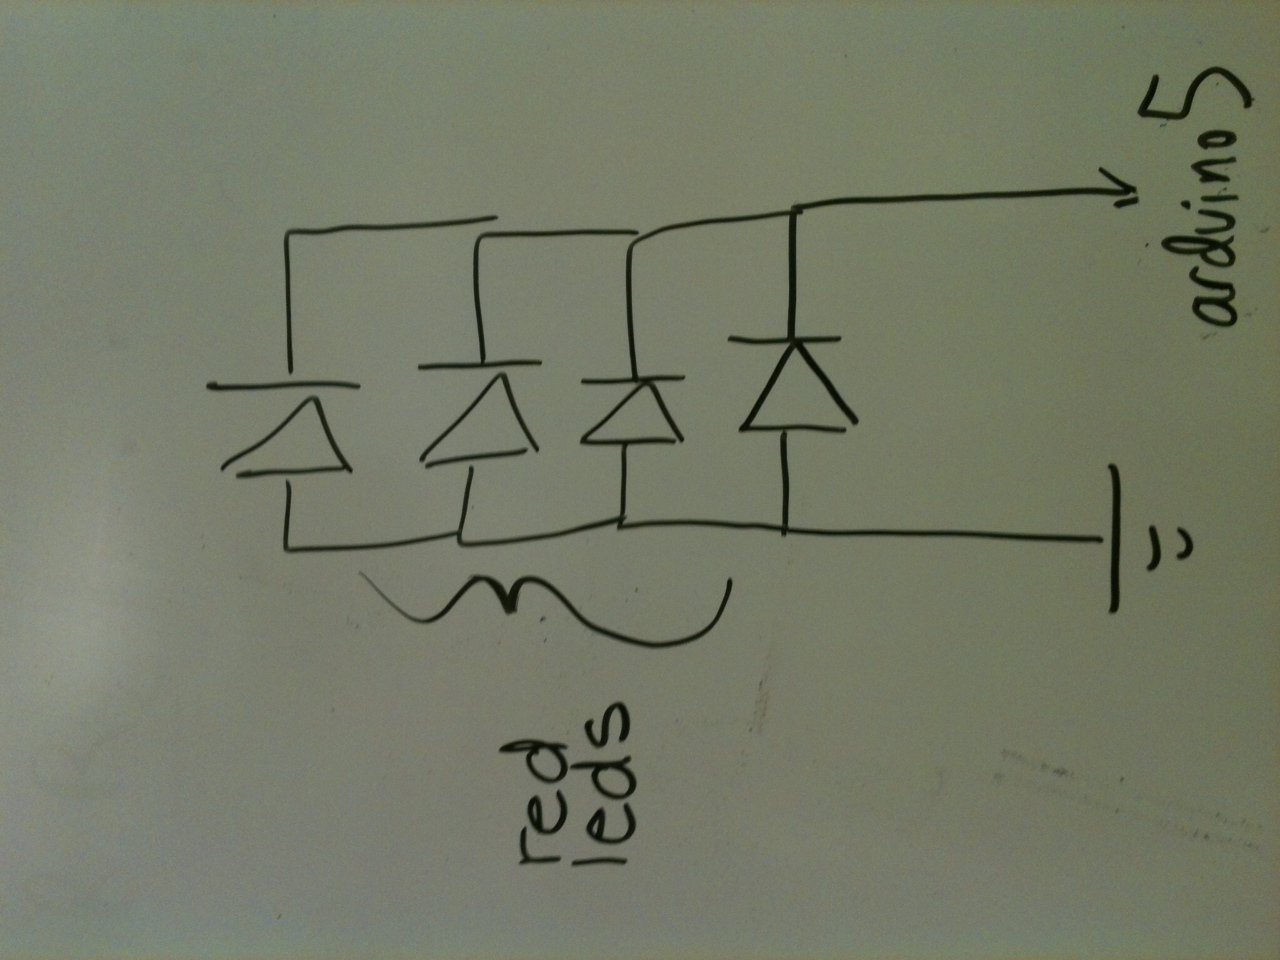 red
leds
arduino 5